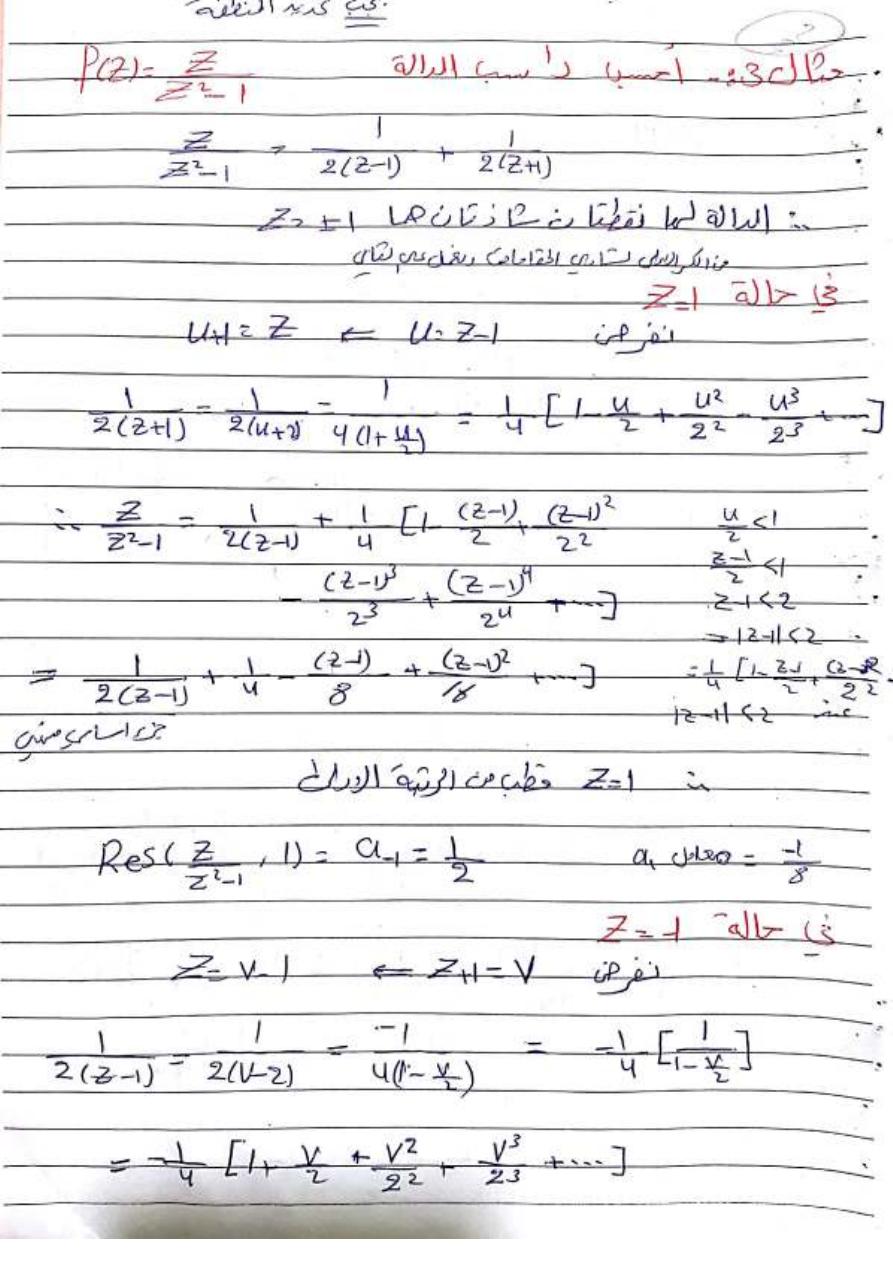 يجب تحديد المنطقة
مثال 3:- أحسب رواسب الدالة f(z) = z/(z²-1)
z/(z²-1) = 1/(2(z-1)) + 1/(2(z+1))
∴ الدالة لها نقطتان شاذتان هما z = ±1
في حالة z=1
نفرض u = z-1 ⇐ u+1 = z
1/(2(z+1)) = 1/(2(u+2)) = 1/(4(1+u/2)) = 1/4 [1 - u/2 + u²/2² - u³/2³ + ....]
∴ z/(z²-1) = 1/(2(z-1)) + 1/4 [1 - (z-1)/2 + (z-1)²/2² u/2 < 1
(z-1)/2 < 1
- (z-1)³/2³ + (z-1)⁴/2⁴ + ....] z-1 < 2
⇒ |z-1| < 2
= 1/(2(z-1)) + 1/4 - (z-1)/8 + (z-1)²/16 + ....] = 1/4 [1 - (z-1)/2 + (z-1)²/2²
عند |z-1| < 2
جزء اساسي منتهي
∴ z=1 قطب من الرتبة الاولى
Res(z/(z²-1), 1) = a₋₁ = 1/2 معامل a₁ = -1/8
في حالة z = -1
نفرض z+1 = v ⇐ z = v-1
1/(2(z-1)) = 1/(2(v-2)) = -1/(4(1 - v/2)) = -1/4 [1/(1 - v/2)]
= -1/4 [1 + v/2 + v²/2² + v³/2³ + ....]